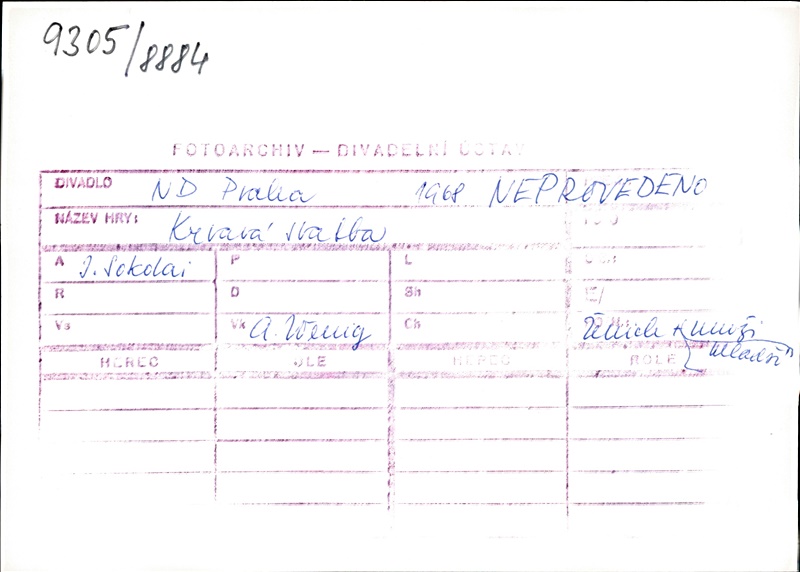 9305/8884
FOTOARCHIV — DIVADELNÍ ÚSTAV
DIVADLO ND Praha 1968 NEPROVEDENO
NÁZEV HRY: Krvavá svatba
A J. Sokolai P L
R D Sh
Vs Vk A. Wenig Ch
Ženich k muži
mladší
HEREC ROLE HEREC ROLE